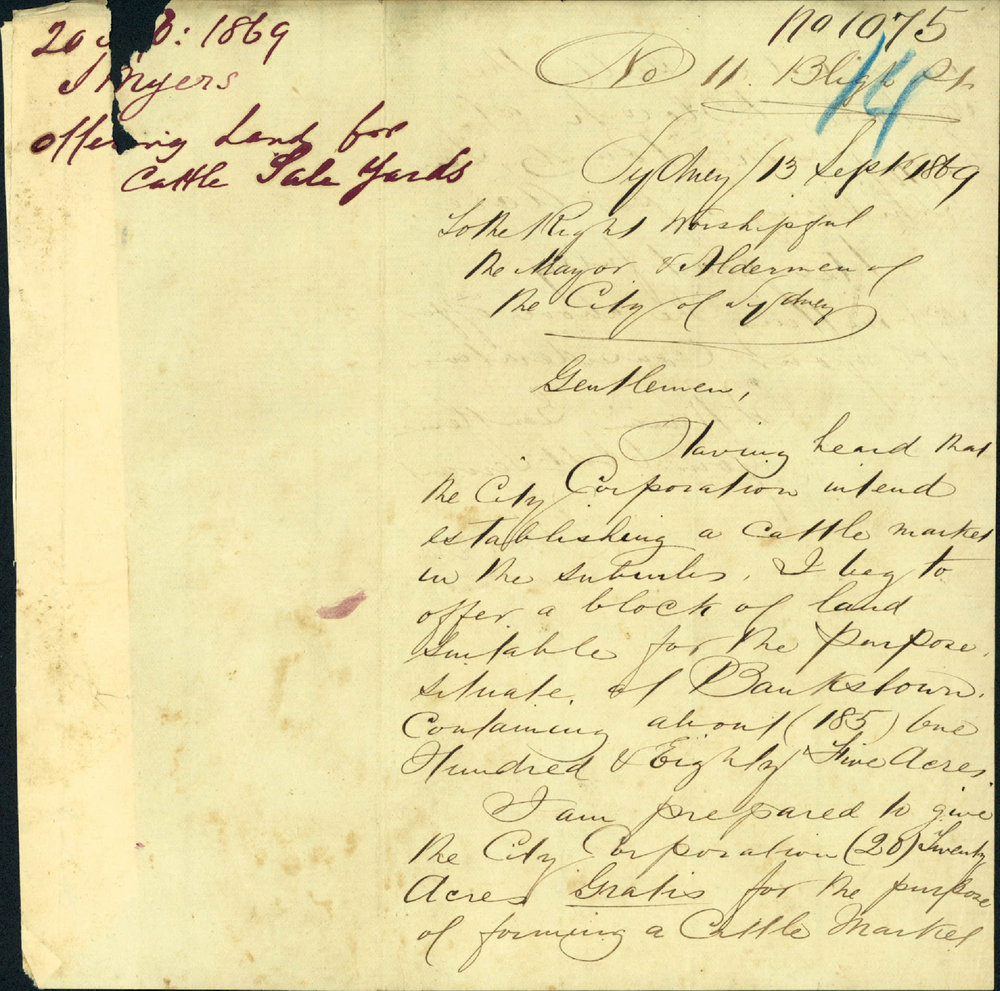 20 : 1869
J Myers
offering Land for
Cattle Sale Yards
No 1075
14
No 11. Bligh St.
Sydney 13 Sept 1869
To the Right Worshipful
the Mayor & Aldermen of
the City of Sydney
Gentlemen,
Having heard that
the City Corporation intend
establishing a Cattle market
in the suburbs. I beg to
offer a block of land
Suitable for the purpose.
Situate, at Bankstown.
Containing about (185) One
Hundred & Eighty Five Acres.
I am prepared to give
the City Corporation (20) Twenty
Acres Gratis for the purpose
of forming a Cattle Market